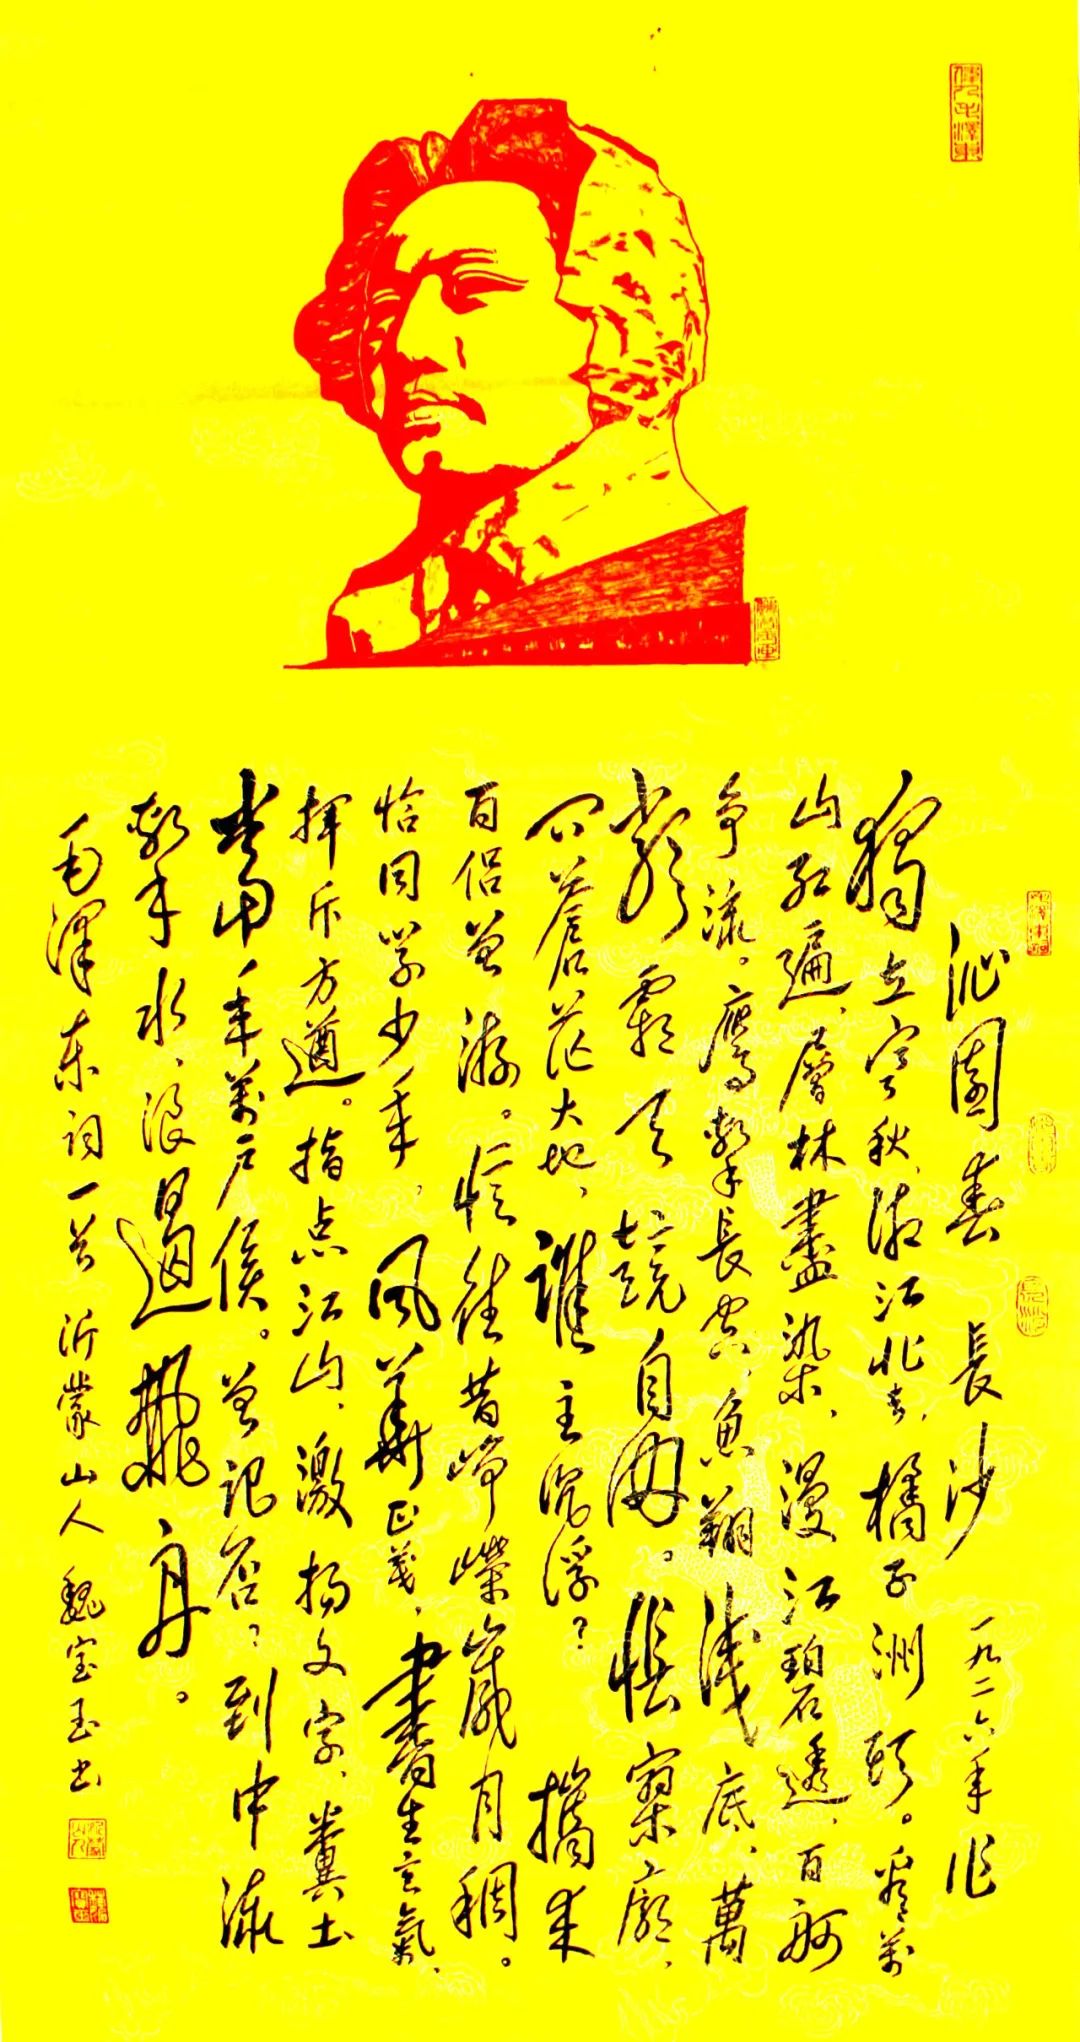 偉人毛澤東
沁園春 長沙 一九二六年作
獨立寒秋，湘江北去，橘子洲頭。看萬
山红遍，層林盡染，漫江碧透，百舸
争流。鷹擊長空，魚翔淺底，萬
類霜天競自由。悵寥廓，
问蒼茫大地，誰主沉浮？攜来
百侣曾游。忆往昔峥嶸歲月稠。
恰同学少年，风華正茂，書生意氣，
挥斥方遒。指点江山，激扬文字，糞土
當年萬户侯。曾记否？到中流
擊水，浪遏飛舟。
毛澤东词一首 沂蒙山人 魏宝玉书
沂蒙山人